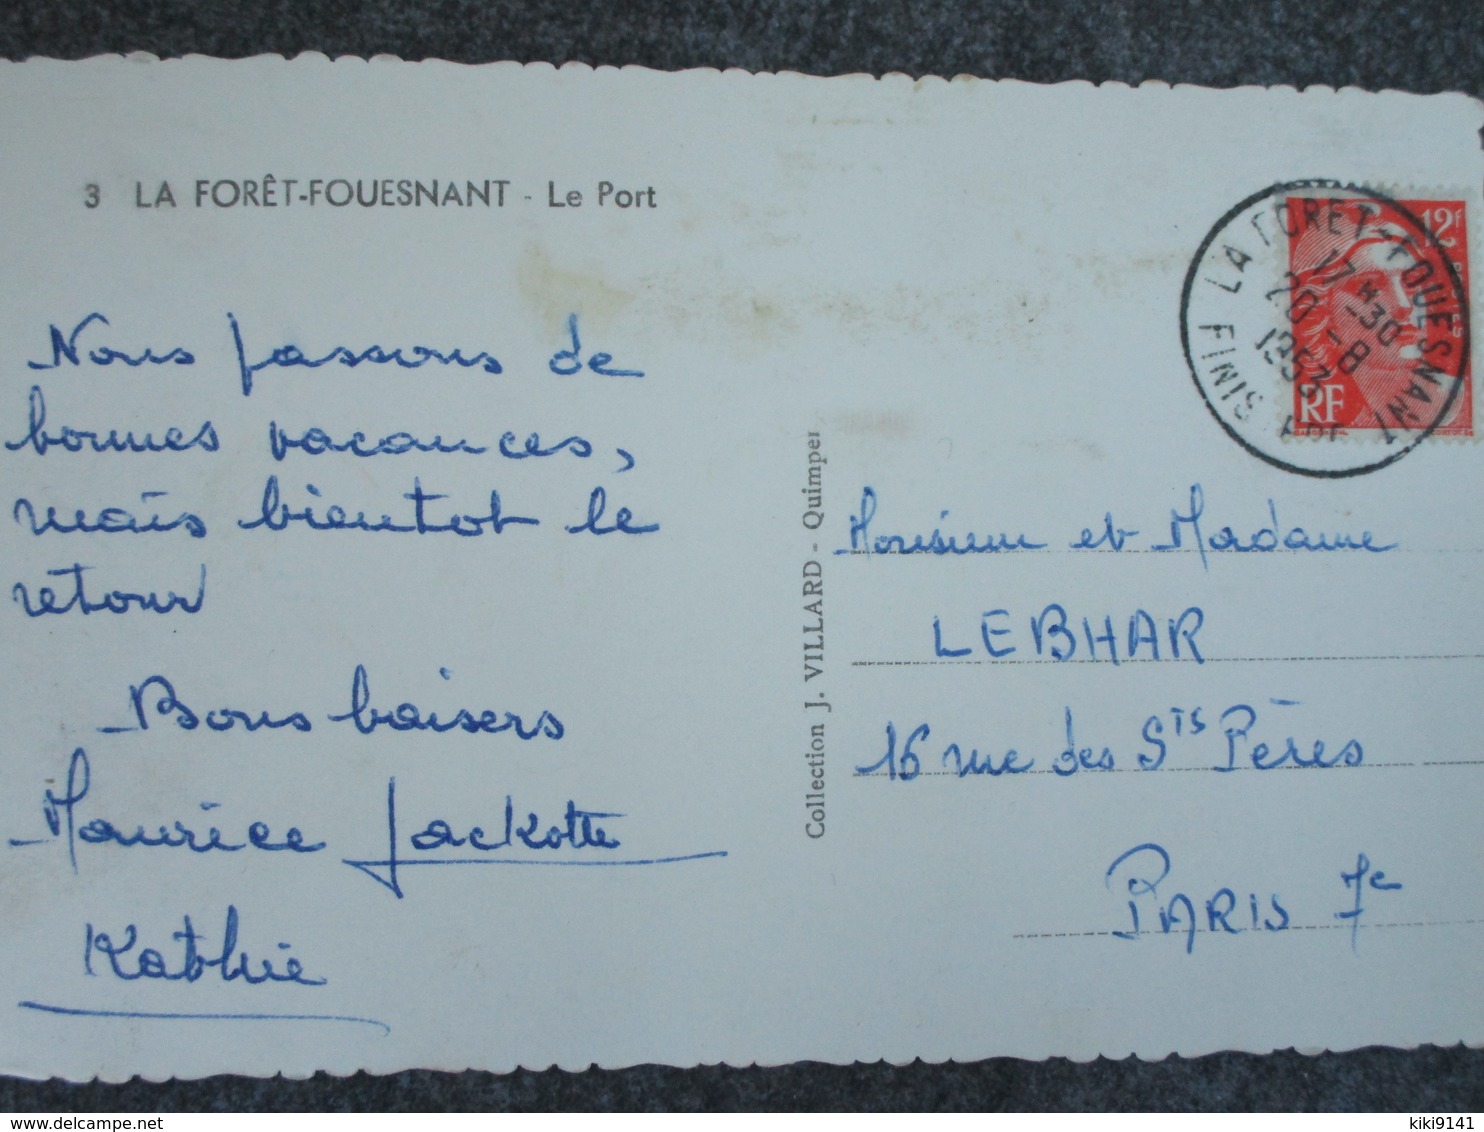 3 LA FORÊT-FOUESNANT - Le Port
Nous passons de
bonnes vacances,
mais bientot le
retour
Bons baisers
Maurice Jackotte
Kathie
Collection J. VILLARD - Quimper
12f
RF
LA FORET-FOUESNANT
17 H-30
20 -8
1953
FINISTERE
Monsieur et Madame
LEBHAR
16 rue des Sts Pères
PARIS 7e
www.delcampe.net
kiki9141